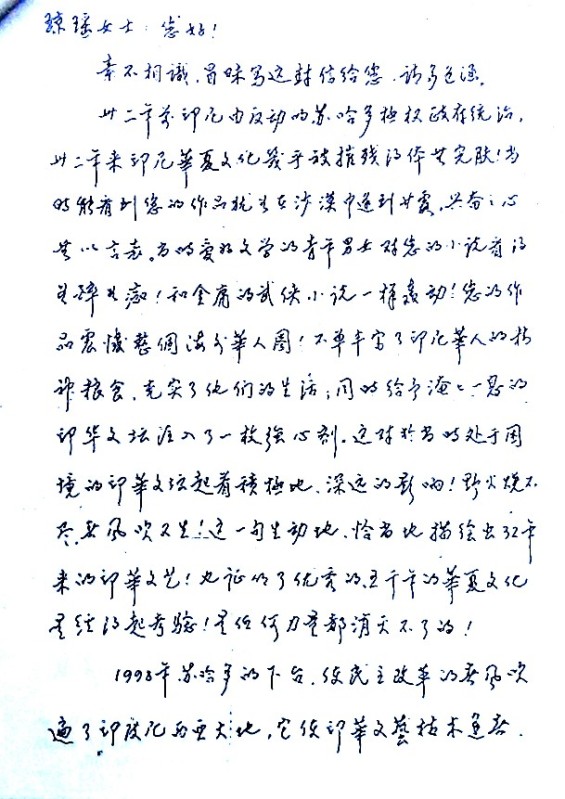 琼瑶女士：您好！
素不相識，冒昧写这封信给您，請多包涵。
卅二年前印尼由反动的苏哈多極权政府统治，
卅二年来印尼華夏文化幾乎被摧残得体無完肤！当
时能看到您的作品就当在沙漠中遇到甘露，兴奋之心
無以言表。当时爱好文学的青年男女对您的小说看得
如醉如痴！和金庸的武侠小说一样轰动！您的作
品震憾整個海外華人圈！不单丰富了印尼華人的精
神粮食，充实了他们的生活；同时给予淹淹一息的
印华文坛注入了一枚強心剂。这对於当时处于困
境的印華文坛起着積極地、深远的影响！野火烧不
尽，春風吹又生！这一句生动地、恰当地描绘出32年
来的印華文艺！也证明了优秀的五千年的華夏文化
是经得起考驗！是任何力量都消灭不了的！
1998年苏哈多的下台，使民主改革的春風吹
遍了印度尼西亚大地，它使印華文藝枯木逢春。